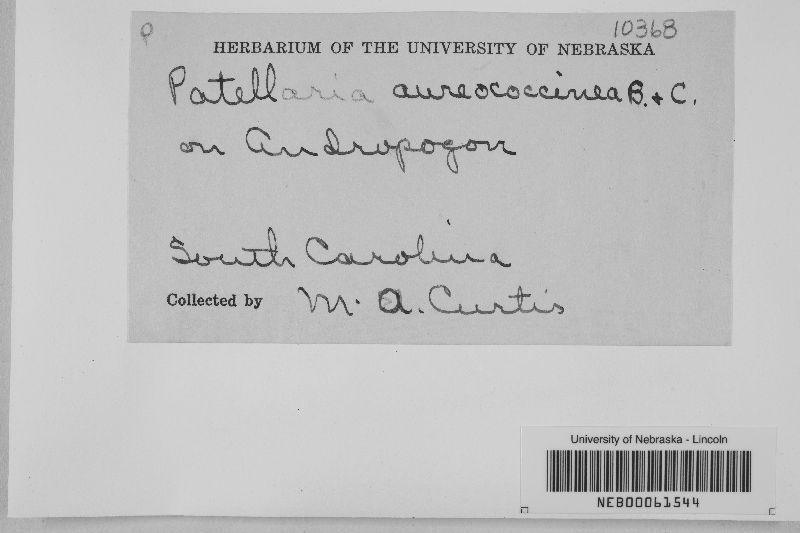 10368
HERBARIUM OF THE UNIVERSITY OF NEBRASKA
Patellaria aureococcinea B. & C.
on Andropogon
South Carolina
Collected by M. A. Curtis
University of Nebraska - Lincoln
NEB00061544